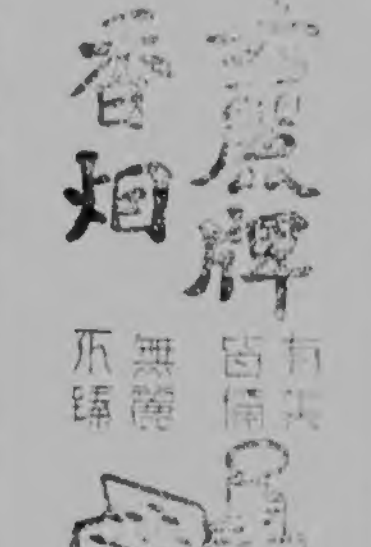 美麗牌
香烟
有美
皆備
無麗
不臻